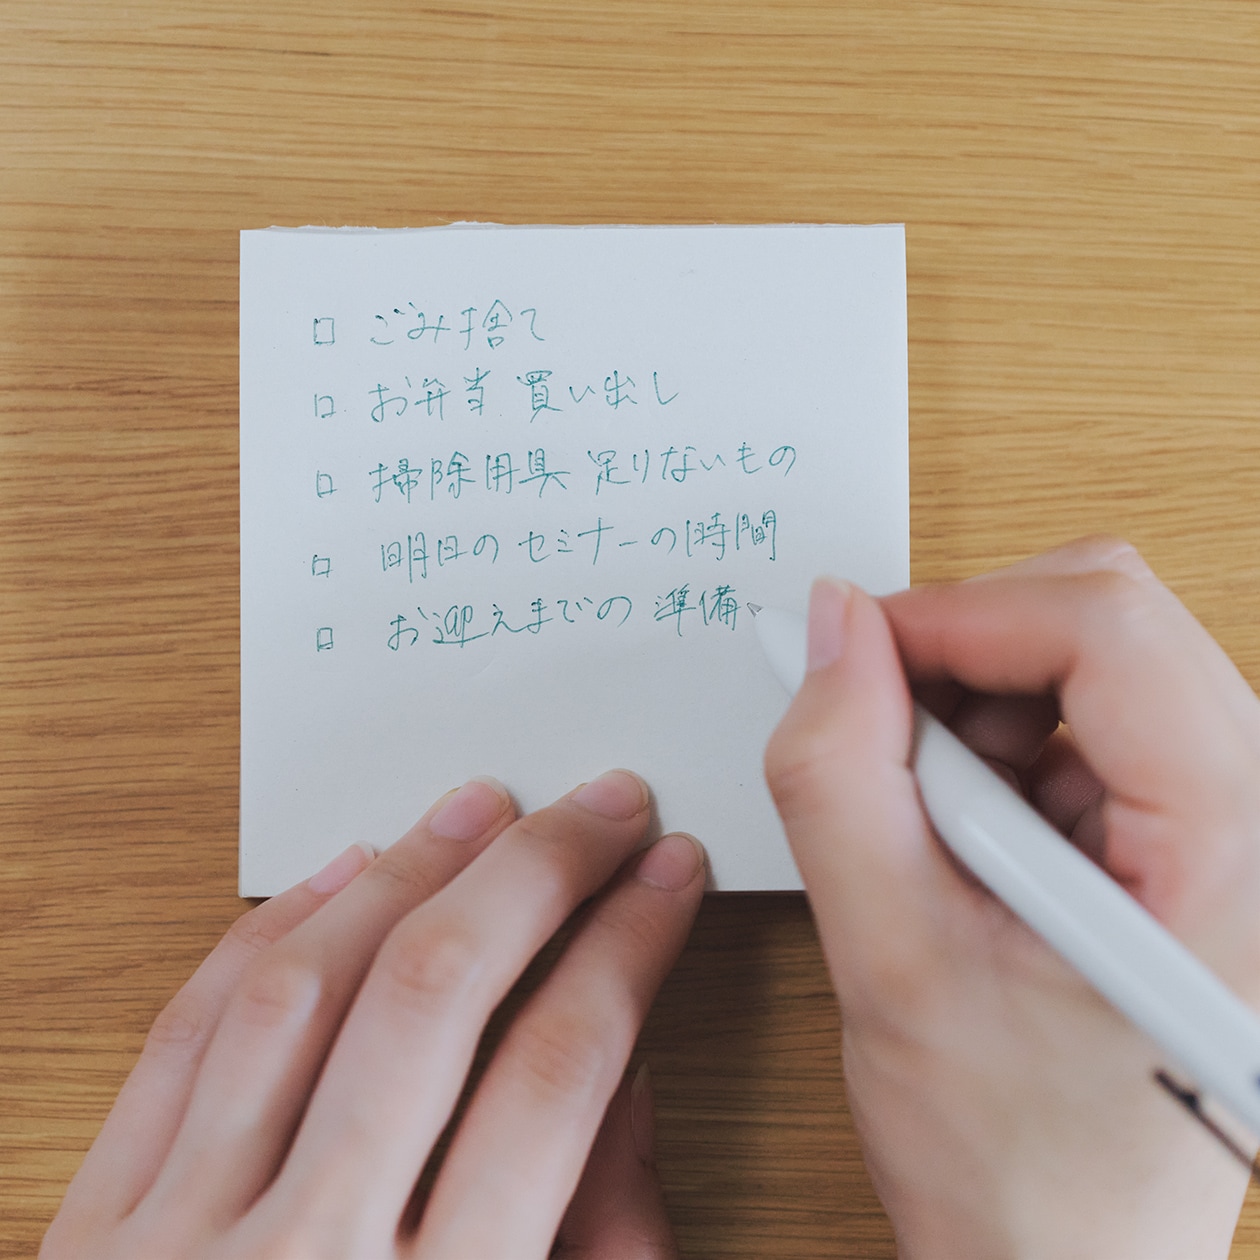 □ ごみ捨て
□ お弁当 買い出し
□ 掃除用具 足りないもの
□ 明日の セミナーの時間
□ お迎えまでの 準備